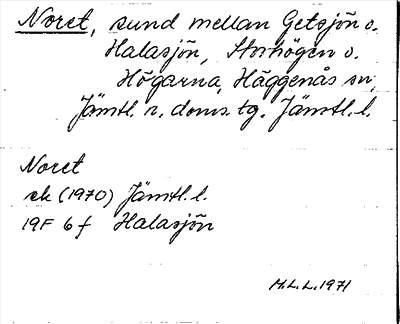 Noret, sund mellan Getsjön o.
Halasjön, Storhögen o.
Högarna, Häggenås sn,
Jämtl. n. doms. tg. Jämtl. l.
Noret
ek (1970) Jämtl. l.
19F 6 f Halasjön
M.L.L. 1971